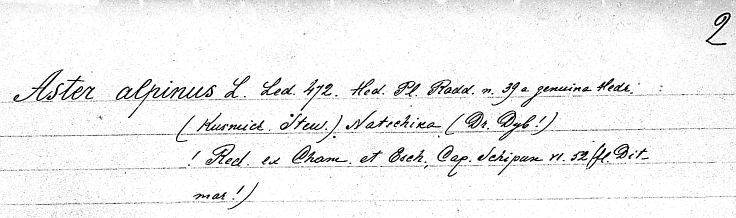 2
Aster alpinus L. Led. 472. Hed. Pl. Radd. n. 39 a genuina Hedr.
(Kusmich. Stew.) Natschika (Dr. Dyb!)
! Red. ex Cham. et Esch, Cap. Schipun VI. 52 (fl. Dit-
mar!)